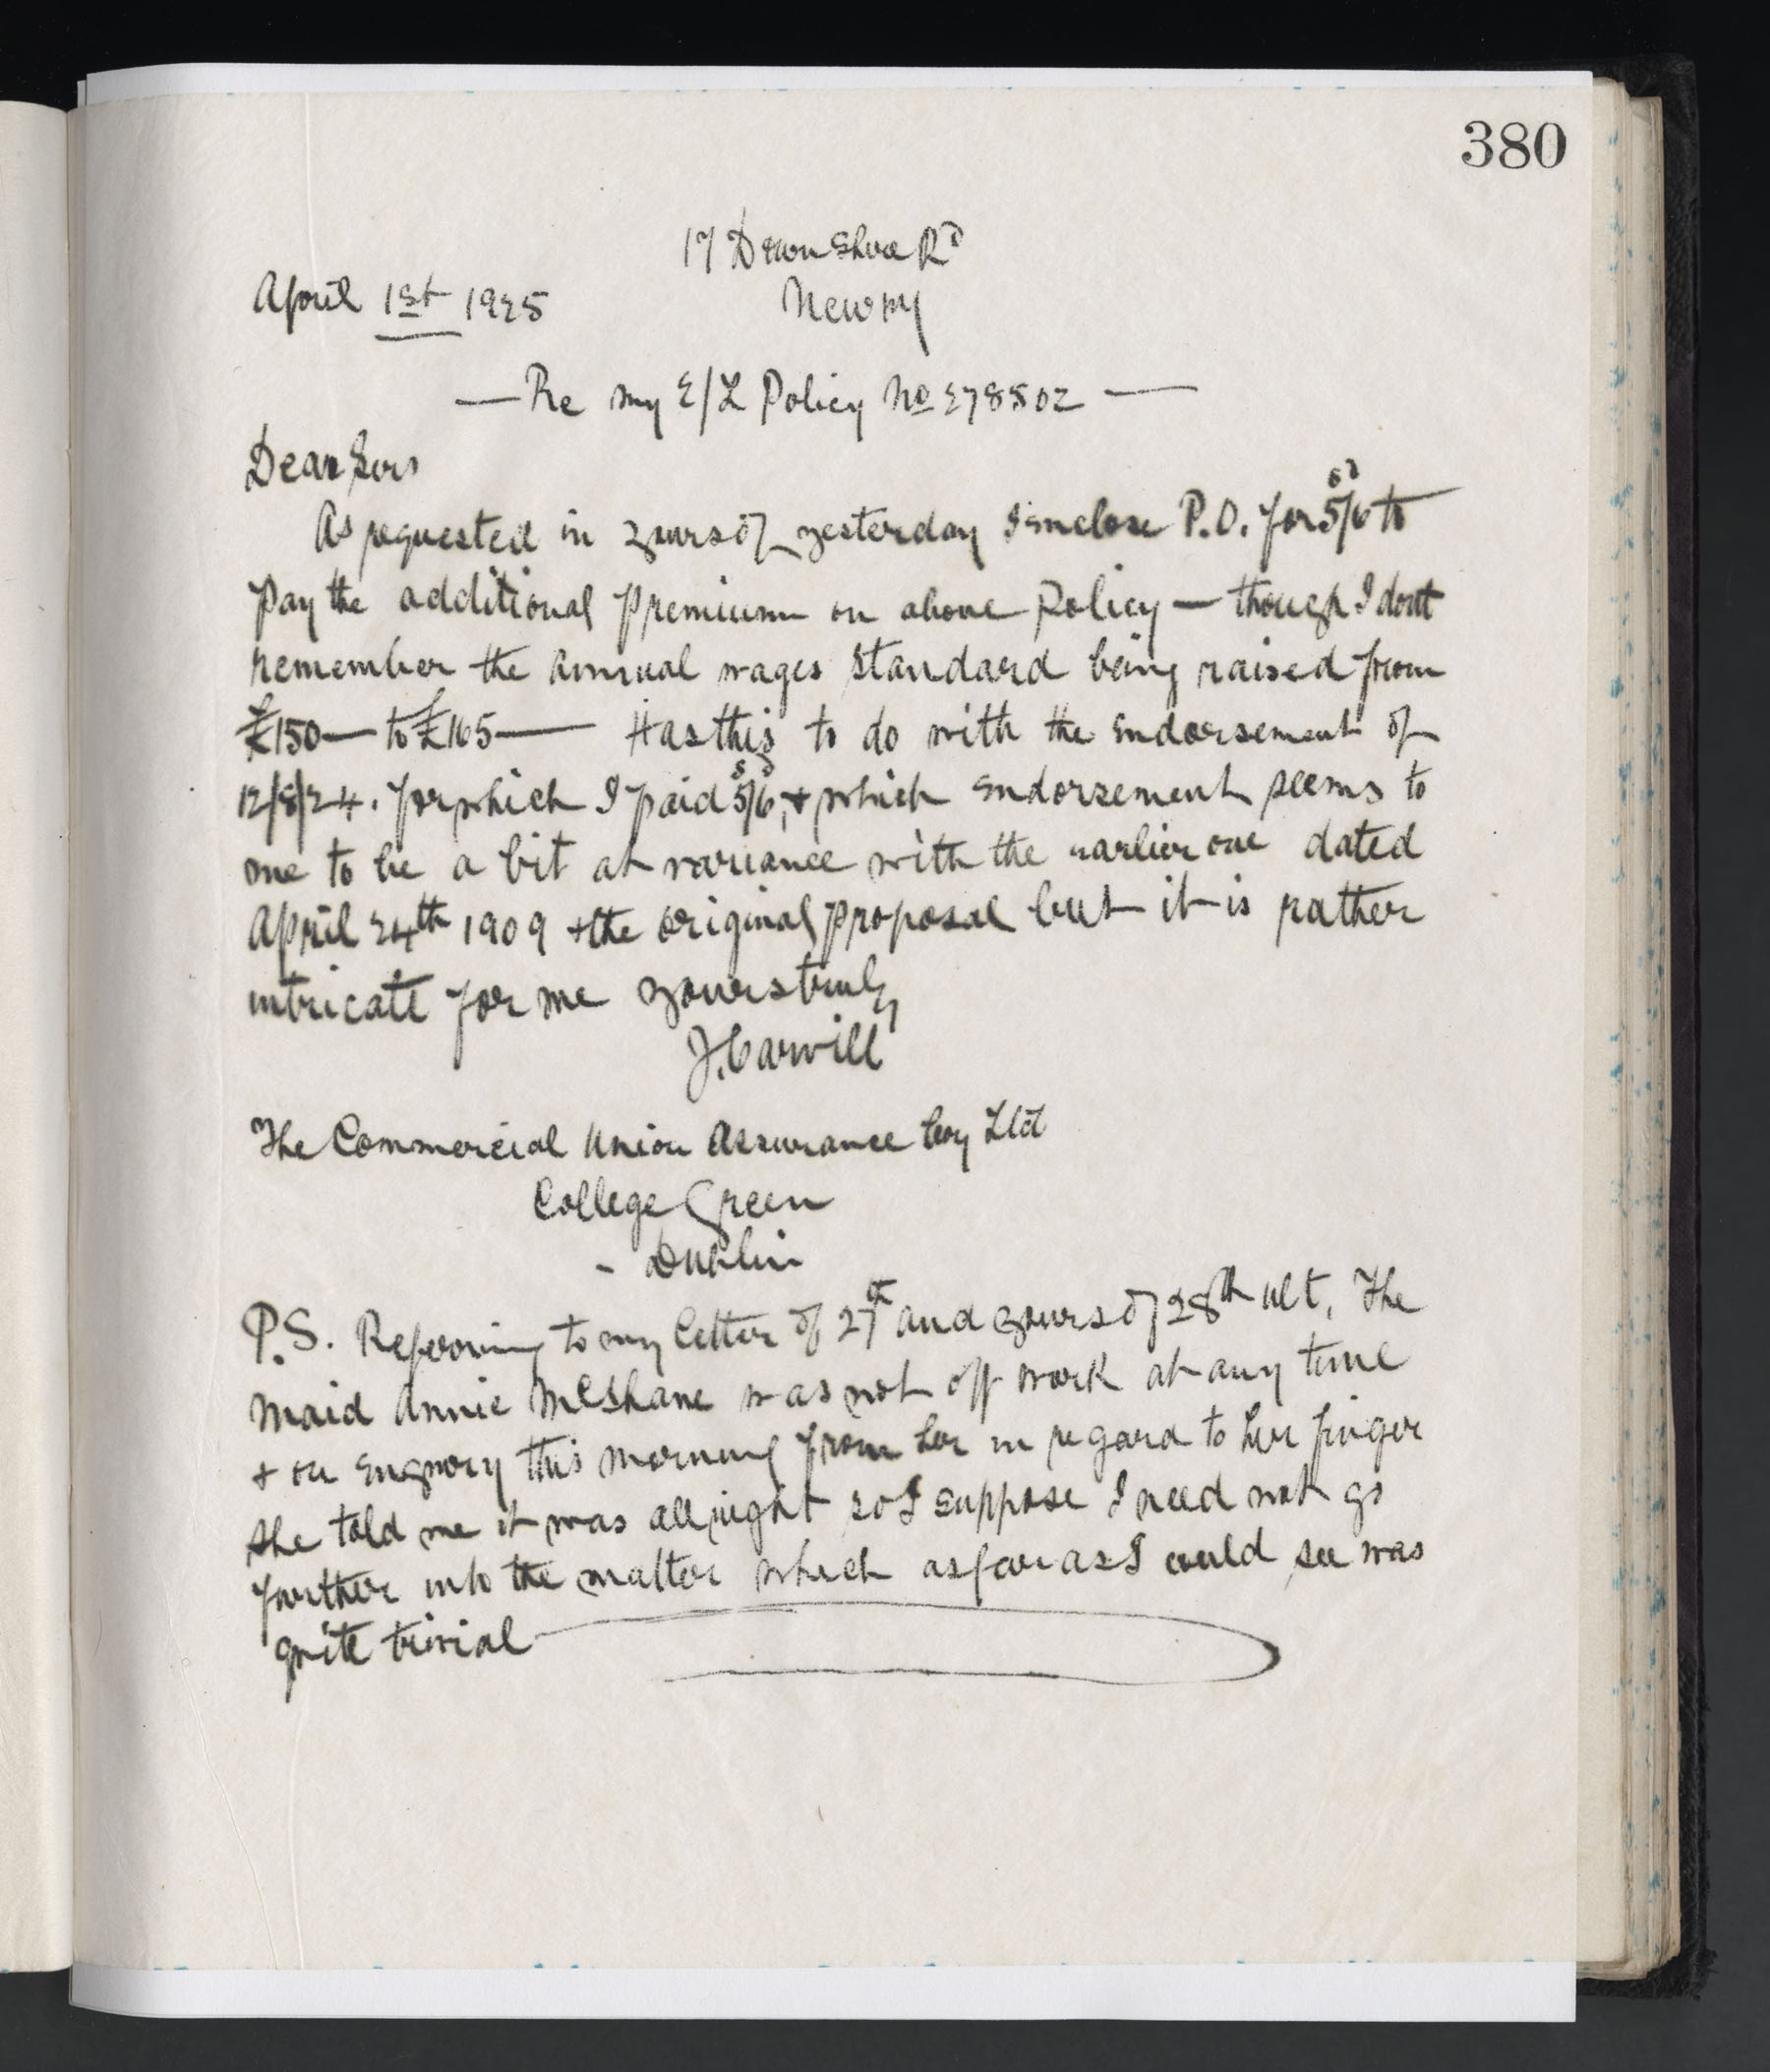 380
17 Downshire Rd
April 1st 1925 Newry
— Re my E/L Policy No 278502 —
Dear Sirs
As requested in yours of yesterday I enclose P.O. for 5s/6d to
pay the additional premium on above Policy — though I dont
remember the annual wages standard being raised from
£150 — to £165 — Has this to do with the endorsement of
12/8/24. for which I paid 5s/6d, + which endorsement seems to
me to be a bit at variance with the earlier one dated
April 24th 1909 + the original proposal but it is rather
intricate for me yours truly
J. Carvill
The Commercial Union Assurance Coy Ltd
College Green
- Dublin
P.S. Referring to my letter of 27th and yours of 28th ult. The
maid Annie McShane was not off work at any time
+ on enquiry this morning from her in regard to her finger
she told me it was all right so I suppose I need not go
further into the matter which as far as I could see was
quite trivial